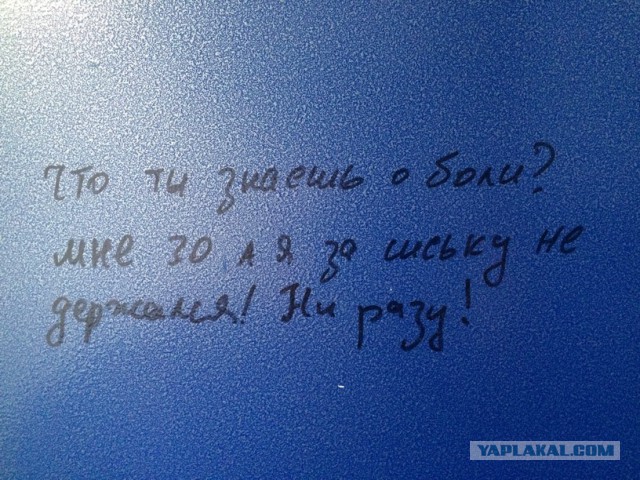 Что ты знаешь о боли?
мне 30 л я за сиську не
держался! Ни разу!
YAPLAKAL.COM